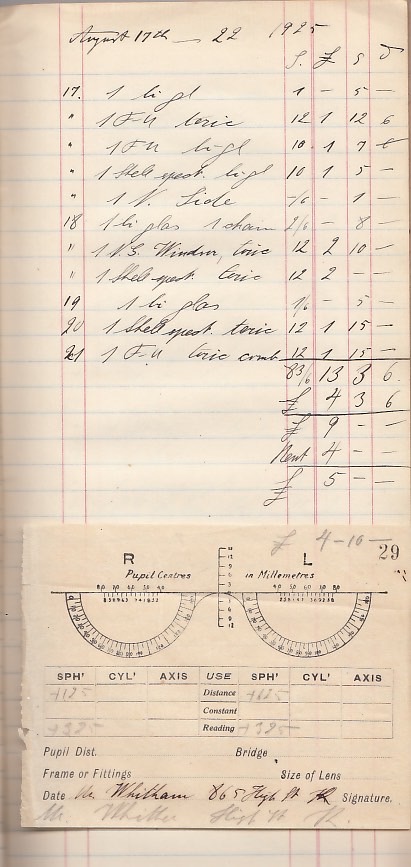 August 17th — 22 1925
S. £ S D
17. 1 bi gl 1 – 5 –
" 1 F-U toric 12 1 12 6
" 1 F-U bigl 10 1 7 6
" 1 Shell spect. bigl 10 1 5 –
" 1 N. Side -/6 – 1 –
18 1 bi glas 1 cham 2/6 – 8 –
" 1 N.S. Windsor, toric 12 2 10 –
" 1 Shell spect. toric 12 2 – –
19 1 bi glas 1/6 – 5 –
20 1 Shell spect toric 12 1 15 –
21 1 F-U toric comb 12 1 15 –
83/6 13 3 6.
£ 4 3 6
£ 9 – –
Rent 4 – –
£ 5 – –
£ 4-10- 29
R L
Pupil Centres in Millemetres
SPH' CYL' AXIS USE SPH' CYL' AXIS
+125 Distance +125
Constant
+325 Reading +325
Pupil Dist. Bridge
Frame or Fittings Size of Lens
Date Mr Whitham 865 High St Signature.
Mr. High St